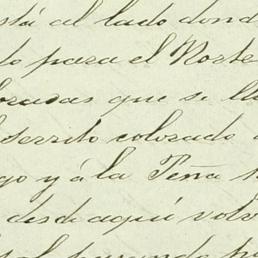 está al lado dond
do para el Norte
que se ll
serrito colorado
go y á la Peña
desde aqui volv